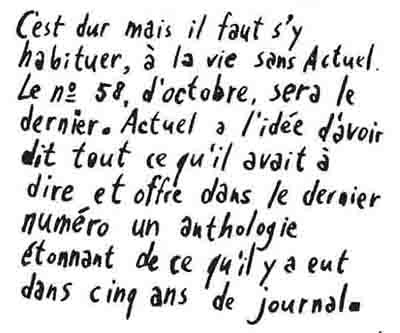 C'est dur mais il faut s'y
habituer, à la vie sans Actuel.
Le nº 58, d'octobre, sera le
dernier. Actuel a l'idée d'avoir
dit tout ce qu'il avait à
dire et offre dans le dernier
numéro un anthologie
étonnant de ce qu'il y a eut
dans cinq ans de journal.